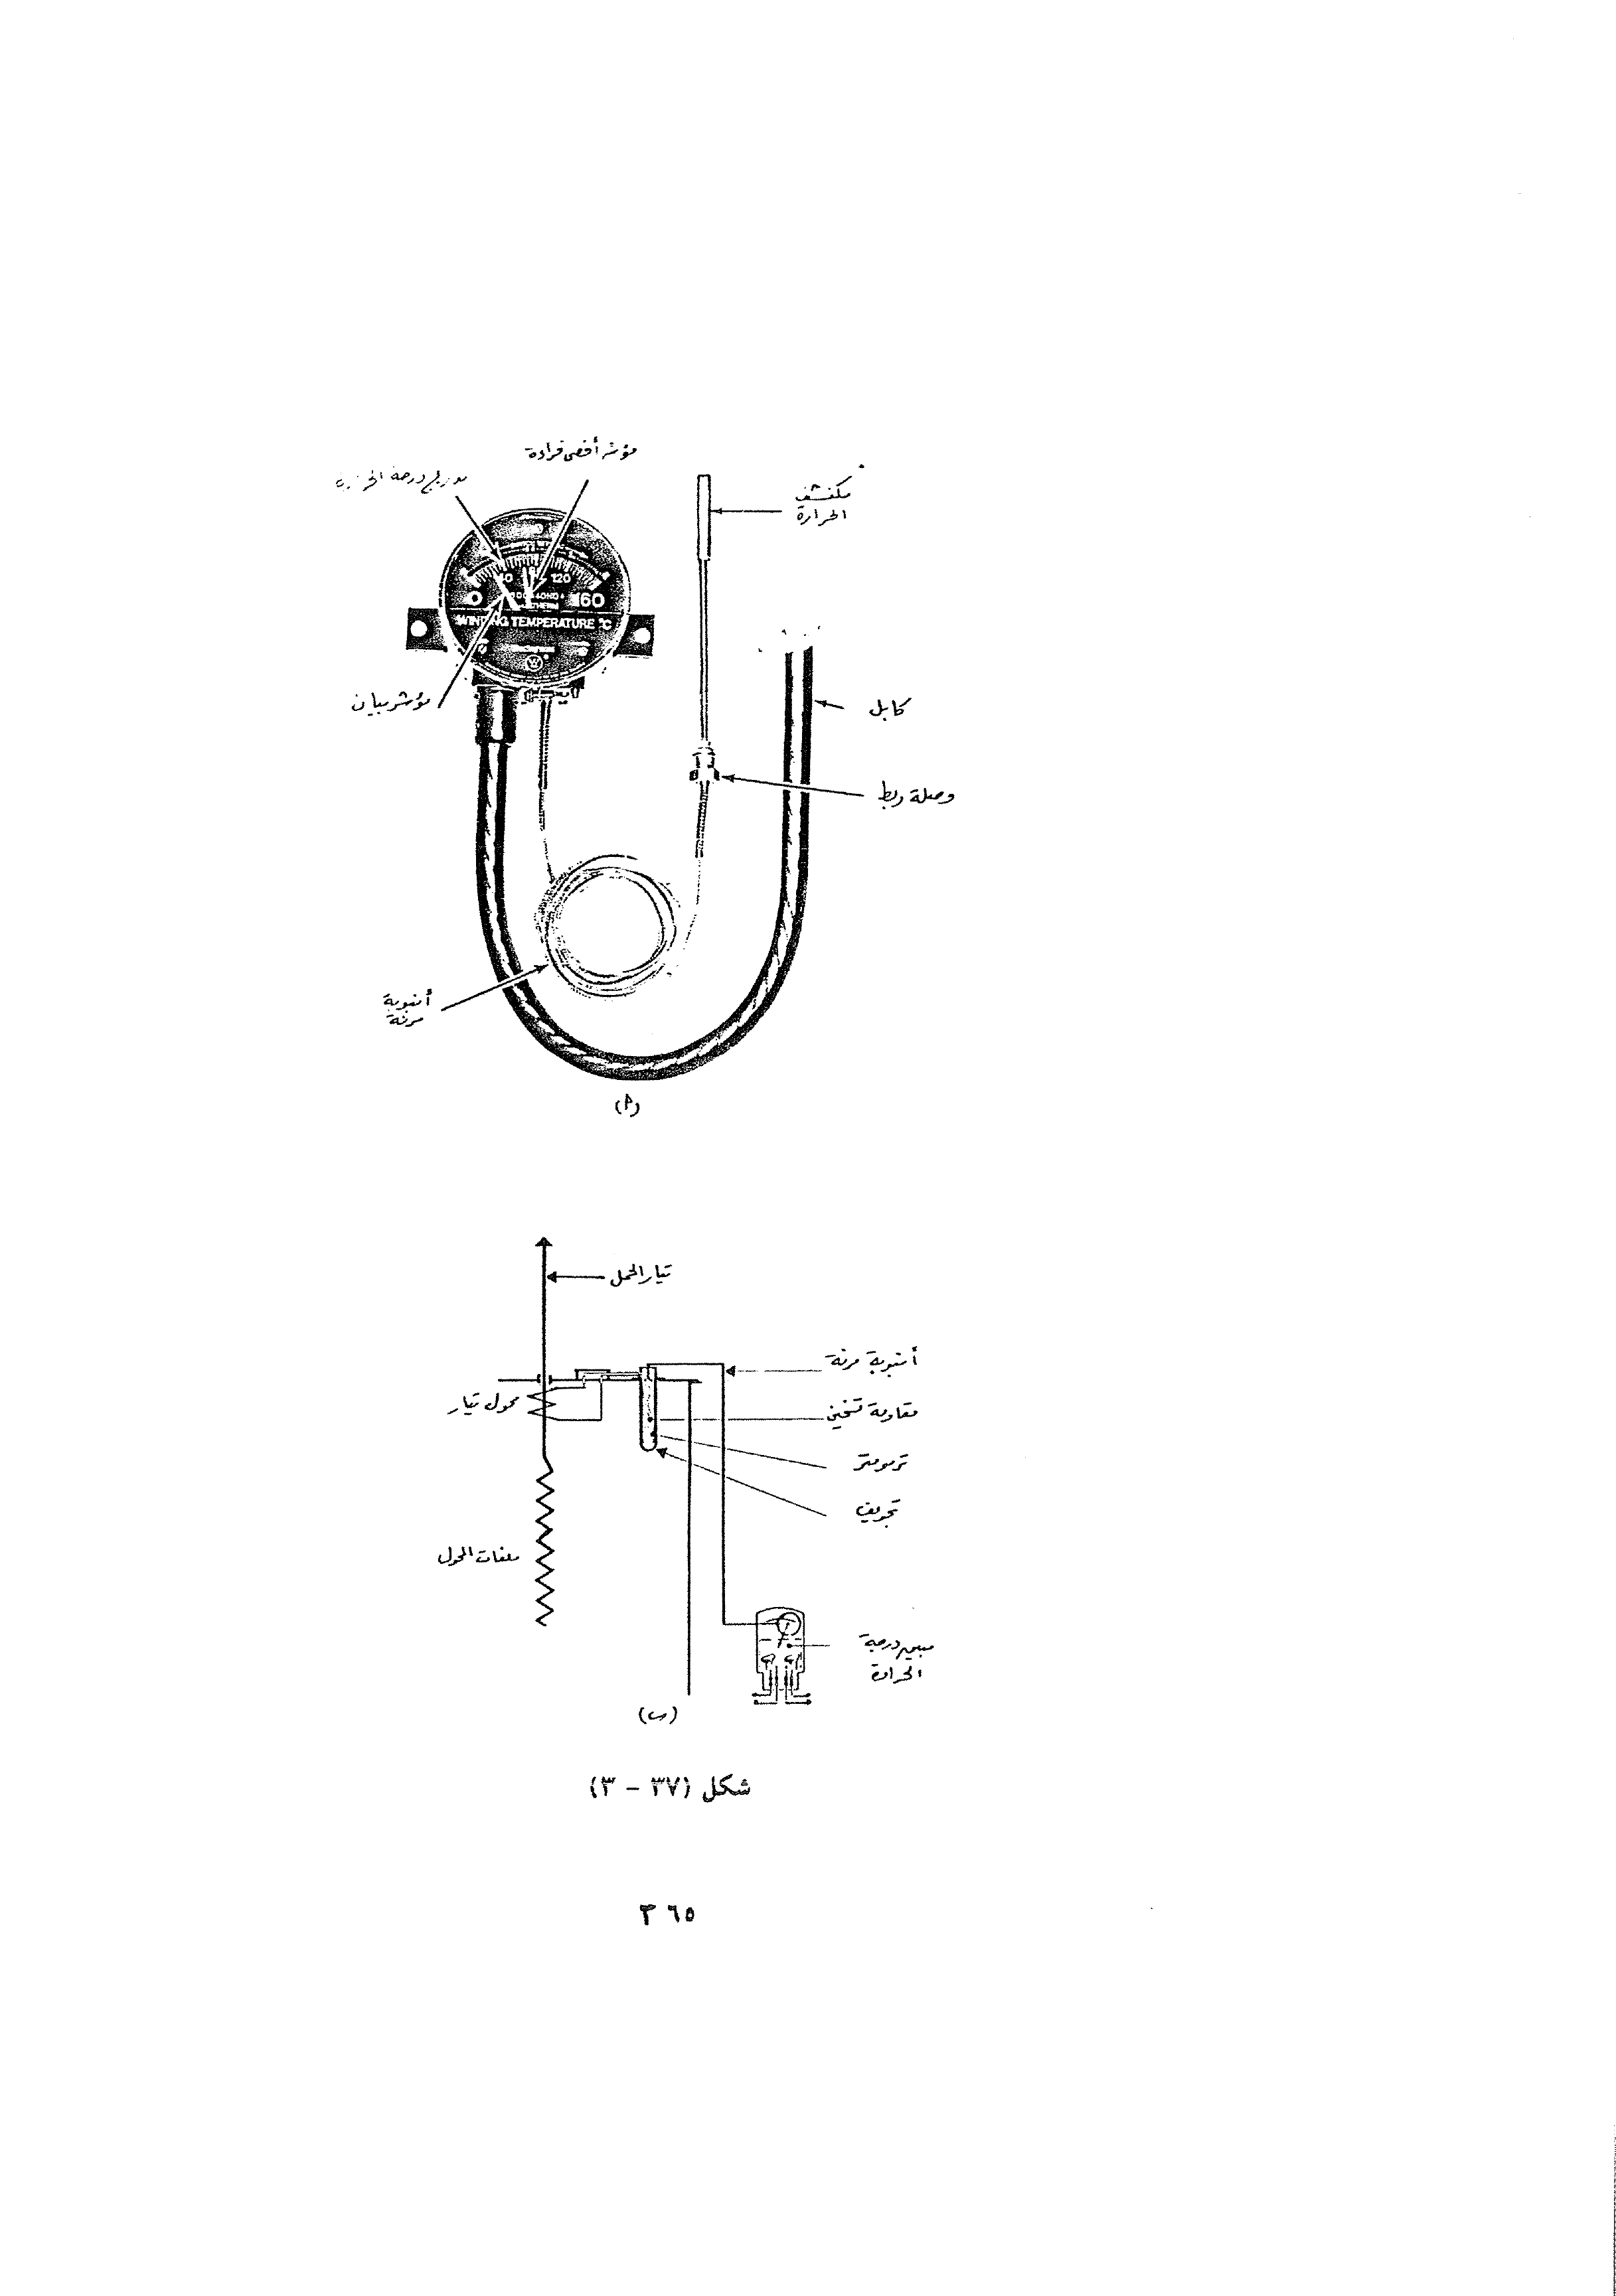 مؤشر أقصى قراءة
تدريج درجة الحرارة
مكتشف
الحرارة
120
0
160
WINDING TEMPERATURE °C
مؤشر بيان
كابل
وصلة ربط
أنبوبة
مرنة
(أ)
تيار الحمل
أنبوبة مرنة
محول تيار
مقاومة تسخين
ترمومتر
تجويف
ملفات المحول
مبين درجة
الحرارة
(ب)
شكل (٣٧ - ٣)
٣٦٥